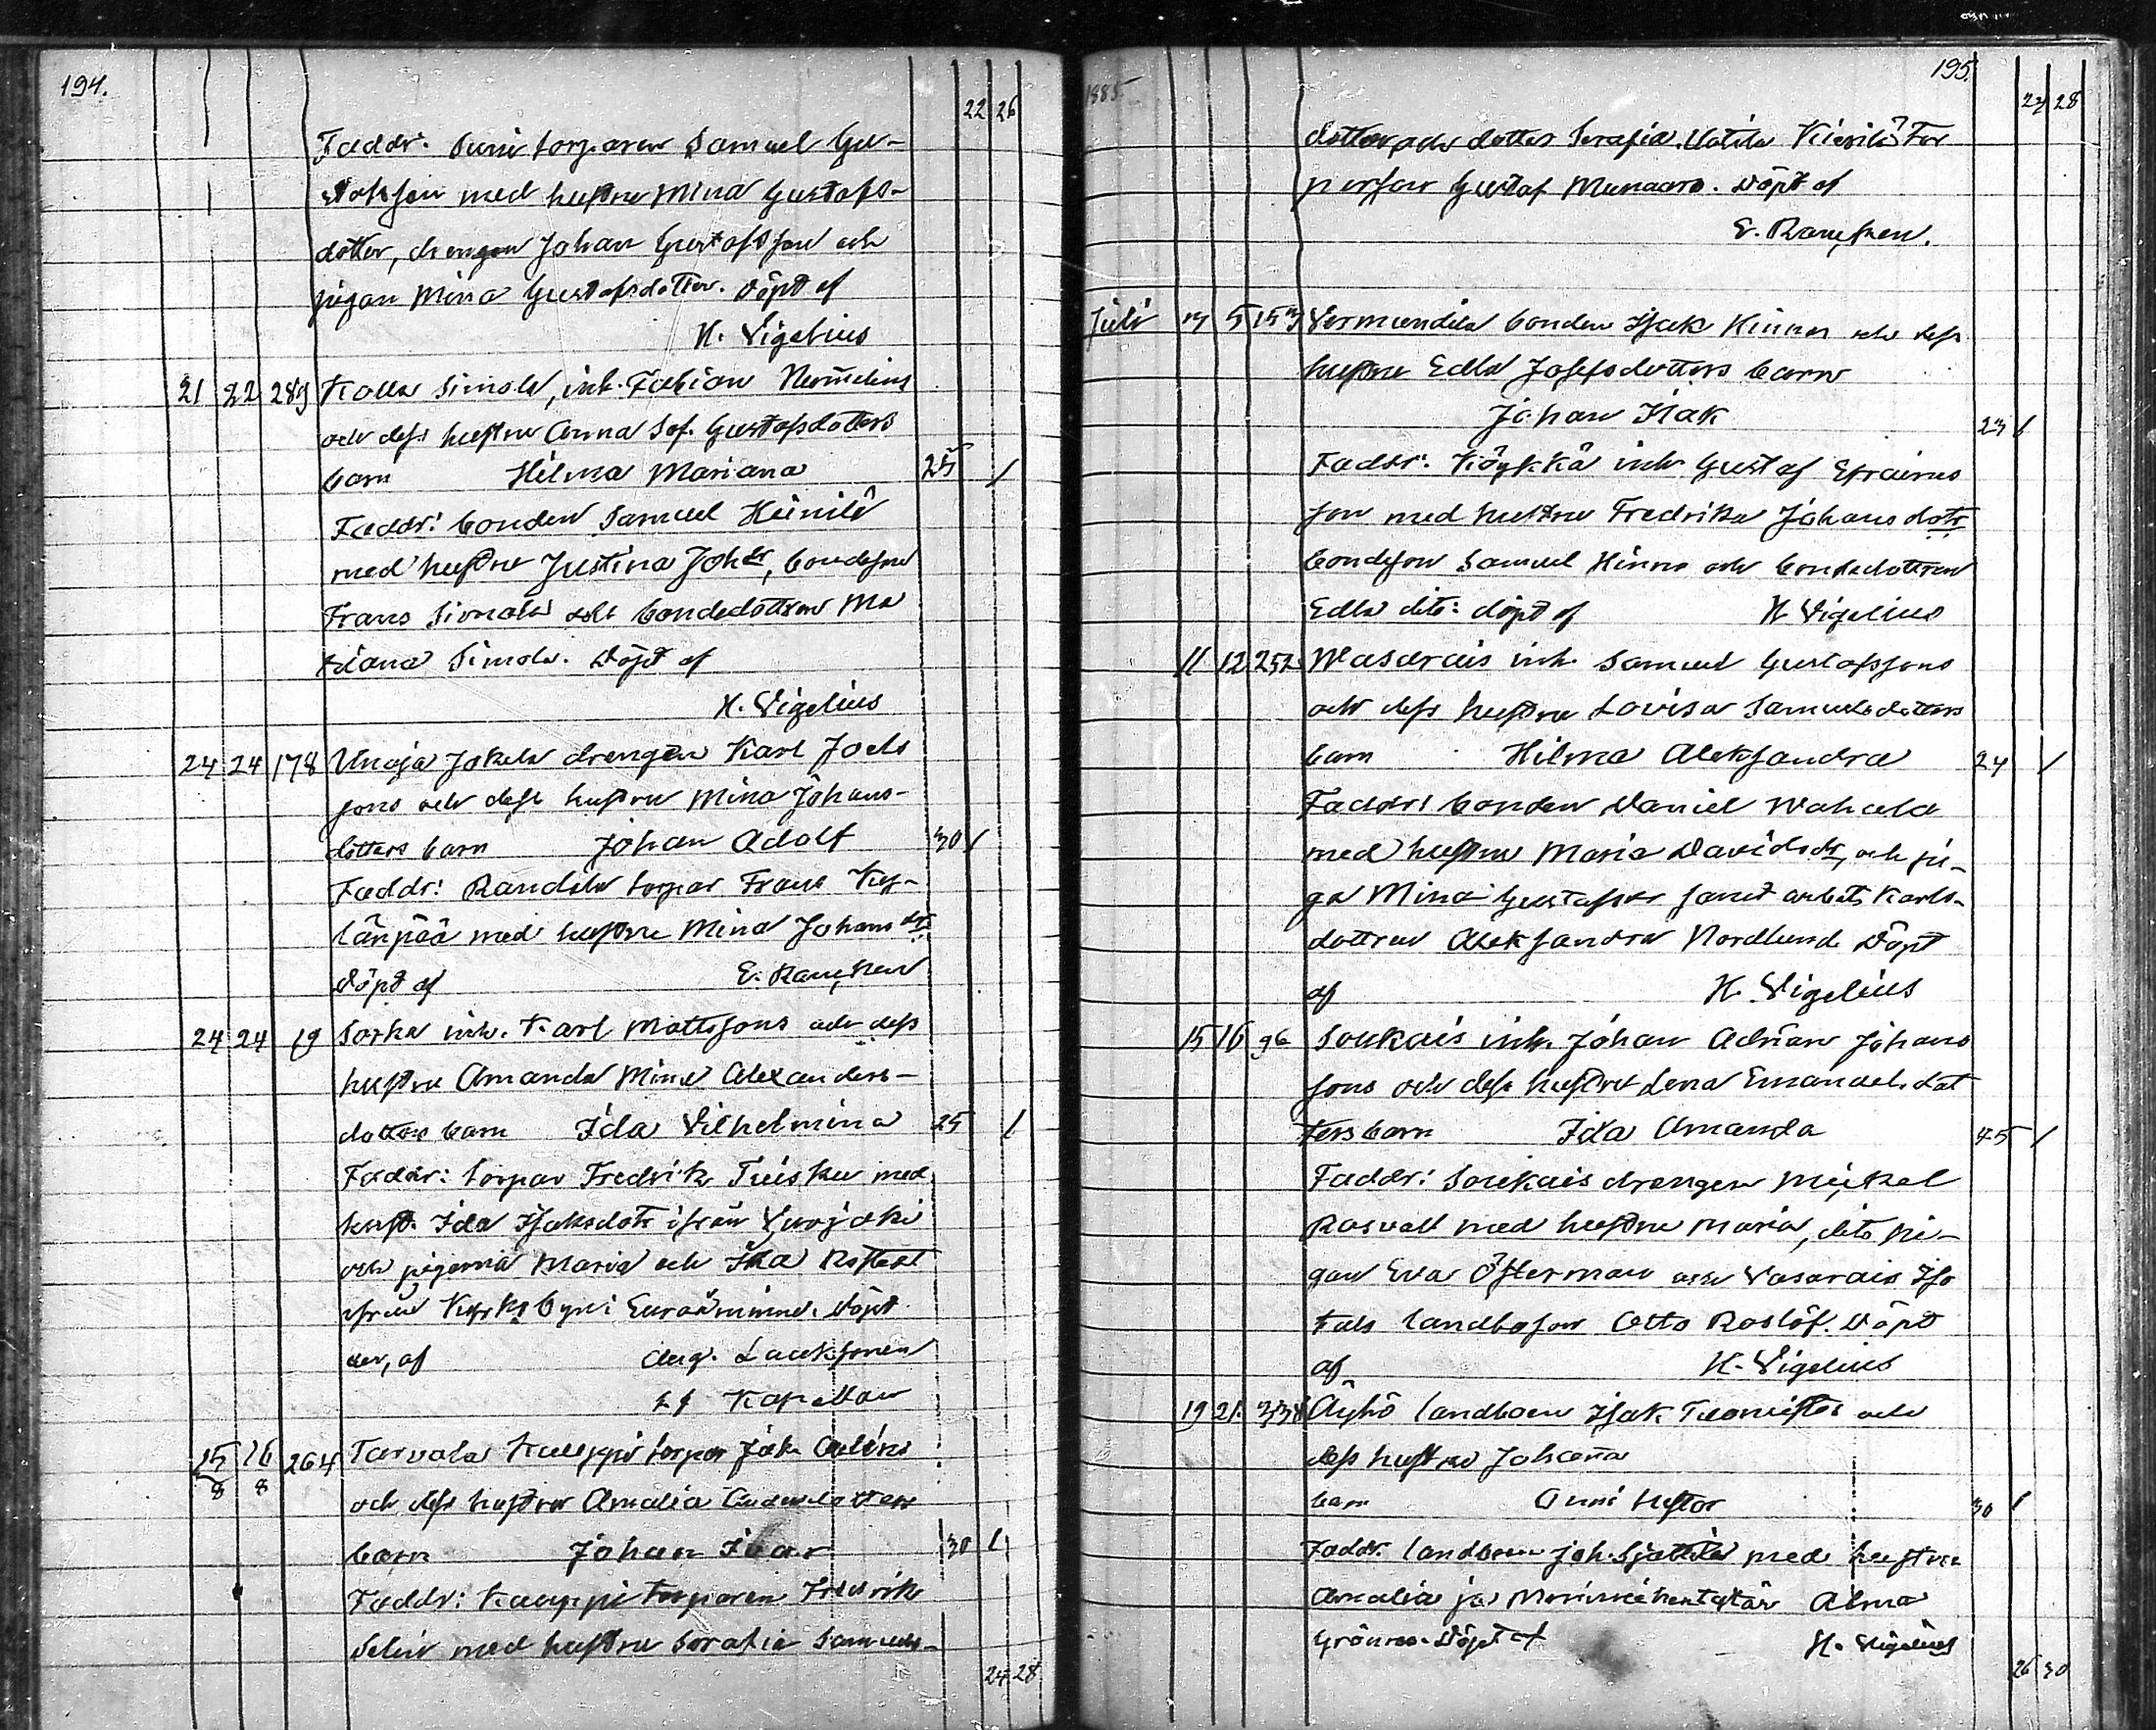 194.
22 26
Faddr: Suni torparen Samuel Gu-
stafsson med hustru Mina Gustafs-
dotter, drengen Johan Gustafsson och
pigan Mina Gustafsdotter. Döpt af
H. Vigelius
21 22 289 Simola, inh. Fabian Numelius
och dess hustru Anna Sof. Gustafsdotters
barn Hilma Mariana 25 /
Faddr: bonden Samuel Heinilä
med hustru Justina Johdr, bondeson
Frans Simola och bondedottren Ma
riana Simola. Döpt af
H. Vigelius
24 24 178 Unaja Jokela drengen Karl Joels
sons och dess hustru Mina Johans-
dotters barn Johan Adolf 30 /
Faddr: Randala torpar Frans
länpää med hustru Mina Johansdr
Döpt af E.
24 24 19 Sorka inh. Karl Mattssons och dess
hustru Amanda Mina Alexanders-
dotters barn Ida Vilhelmina 25 /
Faddr: torpar Fredrik Tuisku med
hust. Ida Isaksdotr ifrån
och pigorna Maria och Ida
ifrån Kyrkobyn i Euraåminne. Döpt
der, af Aug. Lauksonen
Kapellan
25/8 26/8 264 Tarvola Kauppi torpar Isak
och dess hustru Amalia dotters
barn Johan Ivar 30 /
Faddr: Kauppi torparen Fredrik
Selin med hustru Serafia Samuels-
24 28
1885
195.
24 28
dotter, och dotter Serafia Matila Tor
parson Gustaf Munaaro. Döpt af
E.
Juli 3 5 153 Vermundila bonden Isak Kinnos och dess
hustru Edla Josefsdotters barn
Johan Isak 23 /
Faddr: Köykkä inh Gustaf Efraims
son med hustru Fredrika Johansdotr
bondeson Samuel Hinno och bondedottren
Edla dito: döpt af H Vigelius
11 12 252 Wasarais inh. Samuel Gustafssons
och dess hustru Lovisa Samuelsdotters
barn Hilma Aleksandra 24 /
Faddr: bonden Daniel Wahala
med hustru Maria Davidsdr, och pi-
ga Mina Gustafsdr samt arbets Karls-
dottren Aleksandra Nordlund Döpt
af H. Vigelius
15 16 96 Soukais inh. Johan Adrian Johans
sons och dess hustru Lena Emanuels dot
ters barn Ida Amanda 45 /
Faddr: Soukais drengen Mickel
Rosvall med hustru Maria, dito pi-
gan Eva Österman och Vasarais Iso
tals landboson Otto Roslöf. Döpt
af H. Vigelius
19 21 338 Äyhö landboen Isak Tuomistos och
dess hustru Johanna
barn Onni Nestor 30 /
Faddr. landboen Joh. Sjättilä med hustru
Amalia ja Alma
Grönroos. Döpt af H. Vigelius
26 30